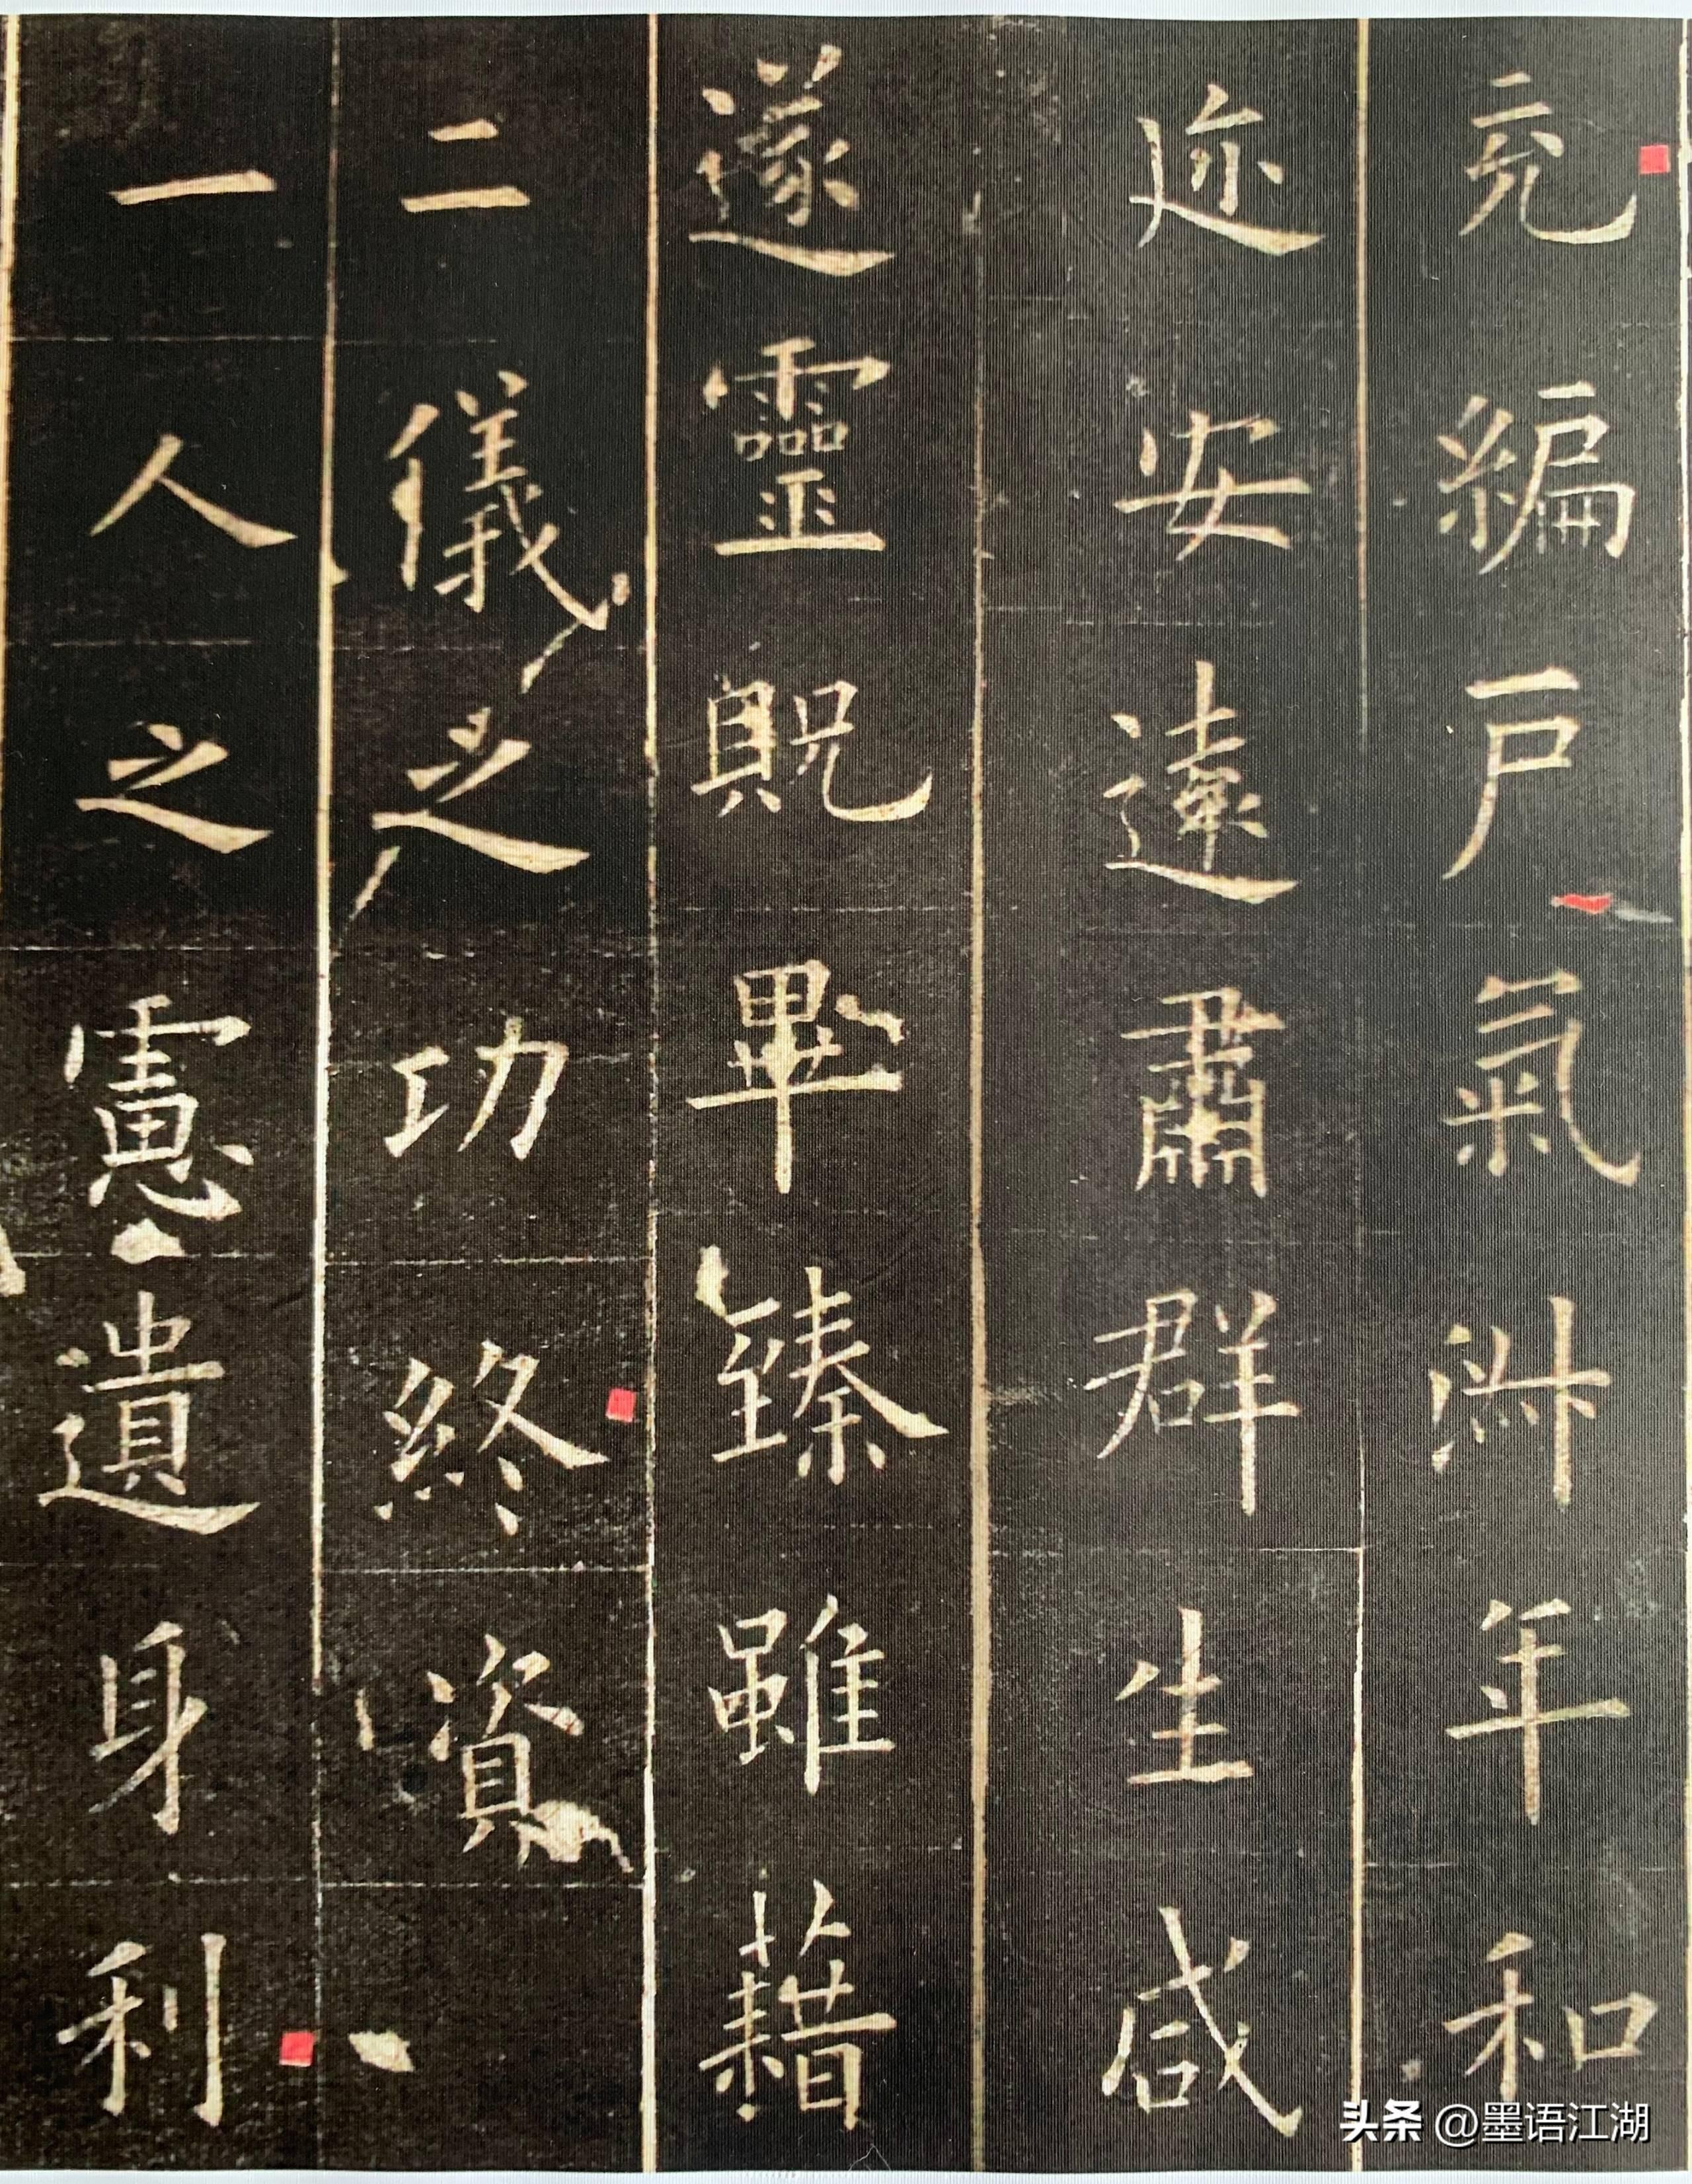 充編戶氣淑年和
迩安遠肅群生咸
遂靈貺畢臻雖藉
二儀之功終資
一人之慮遺身利
头条 @墨语江湖